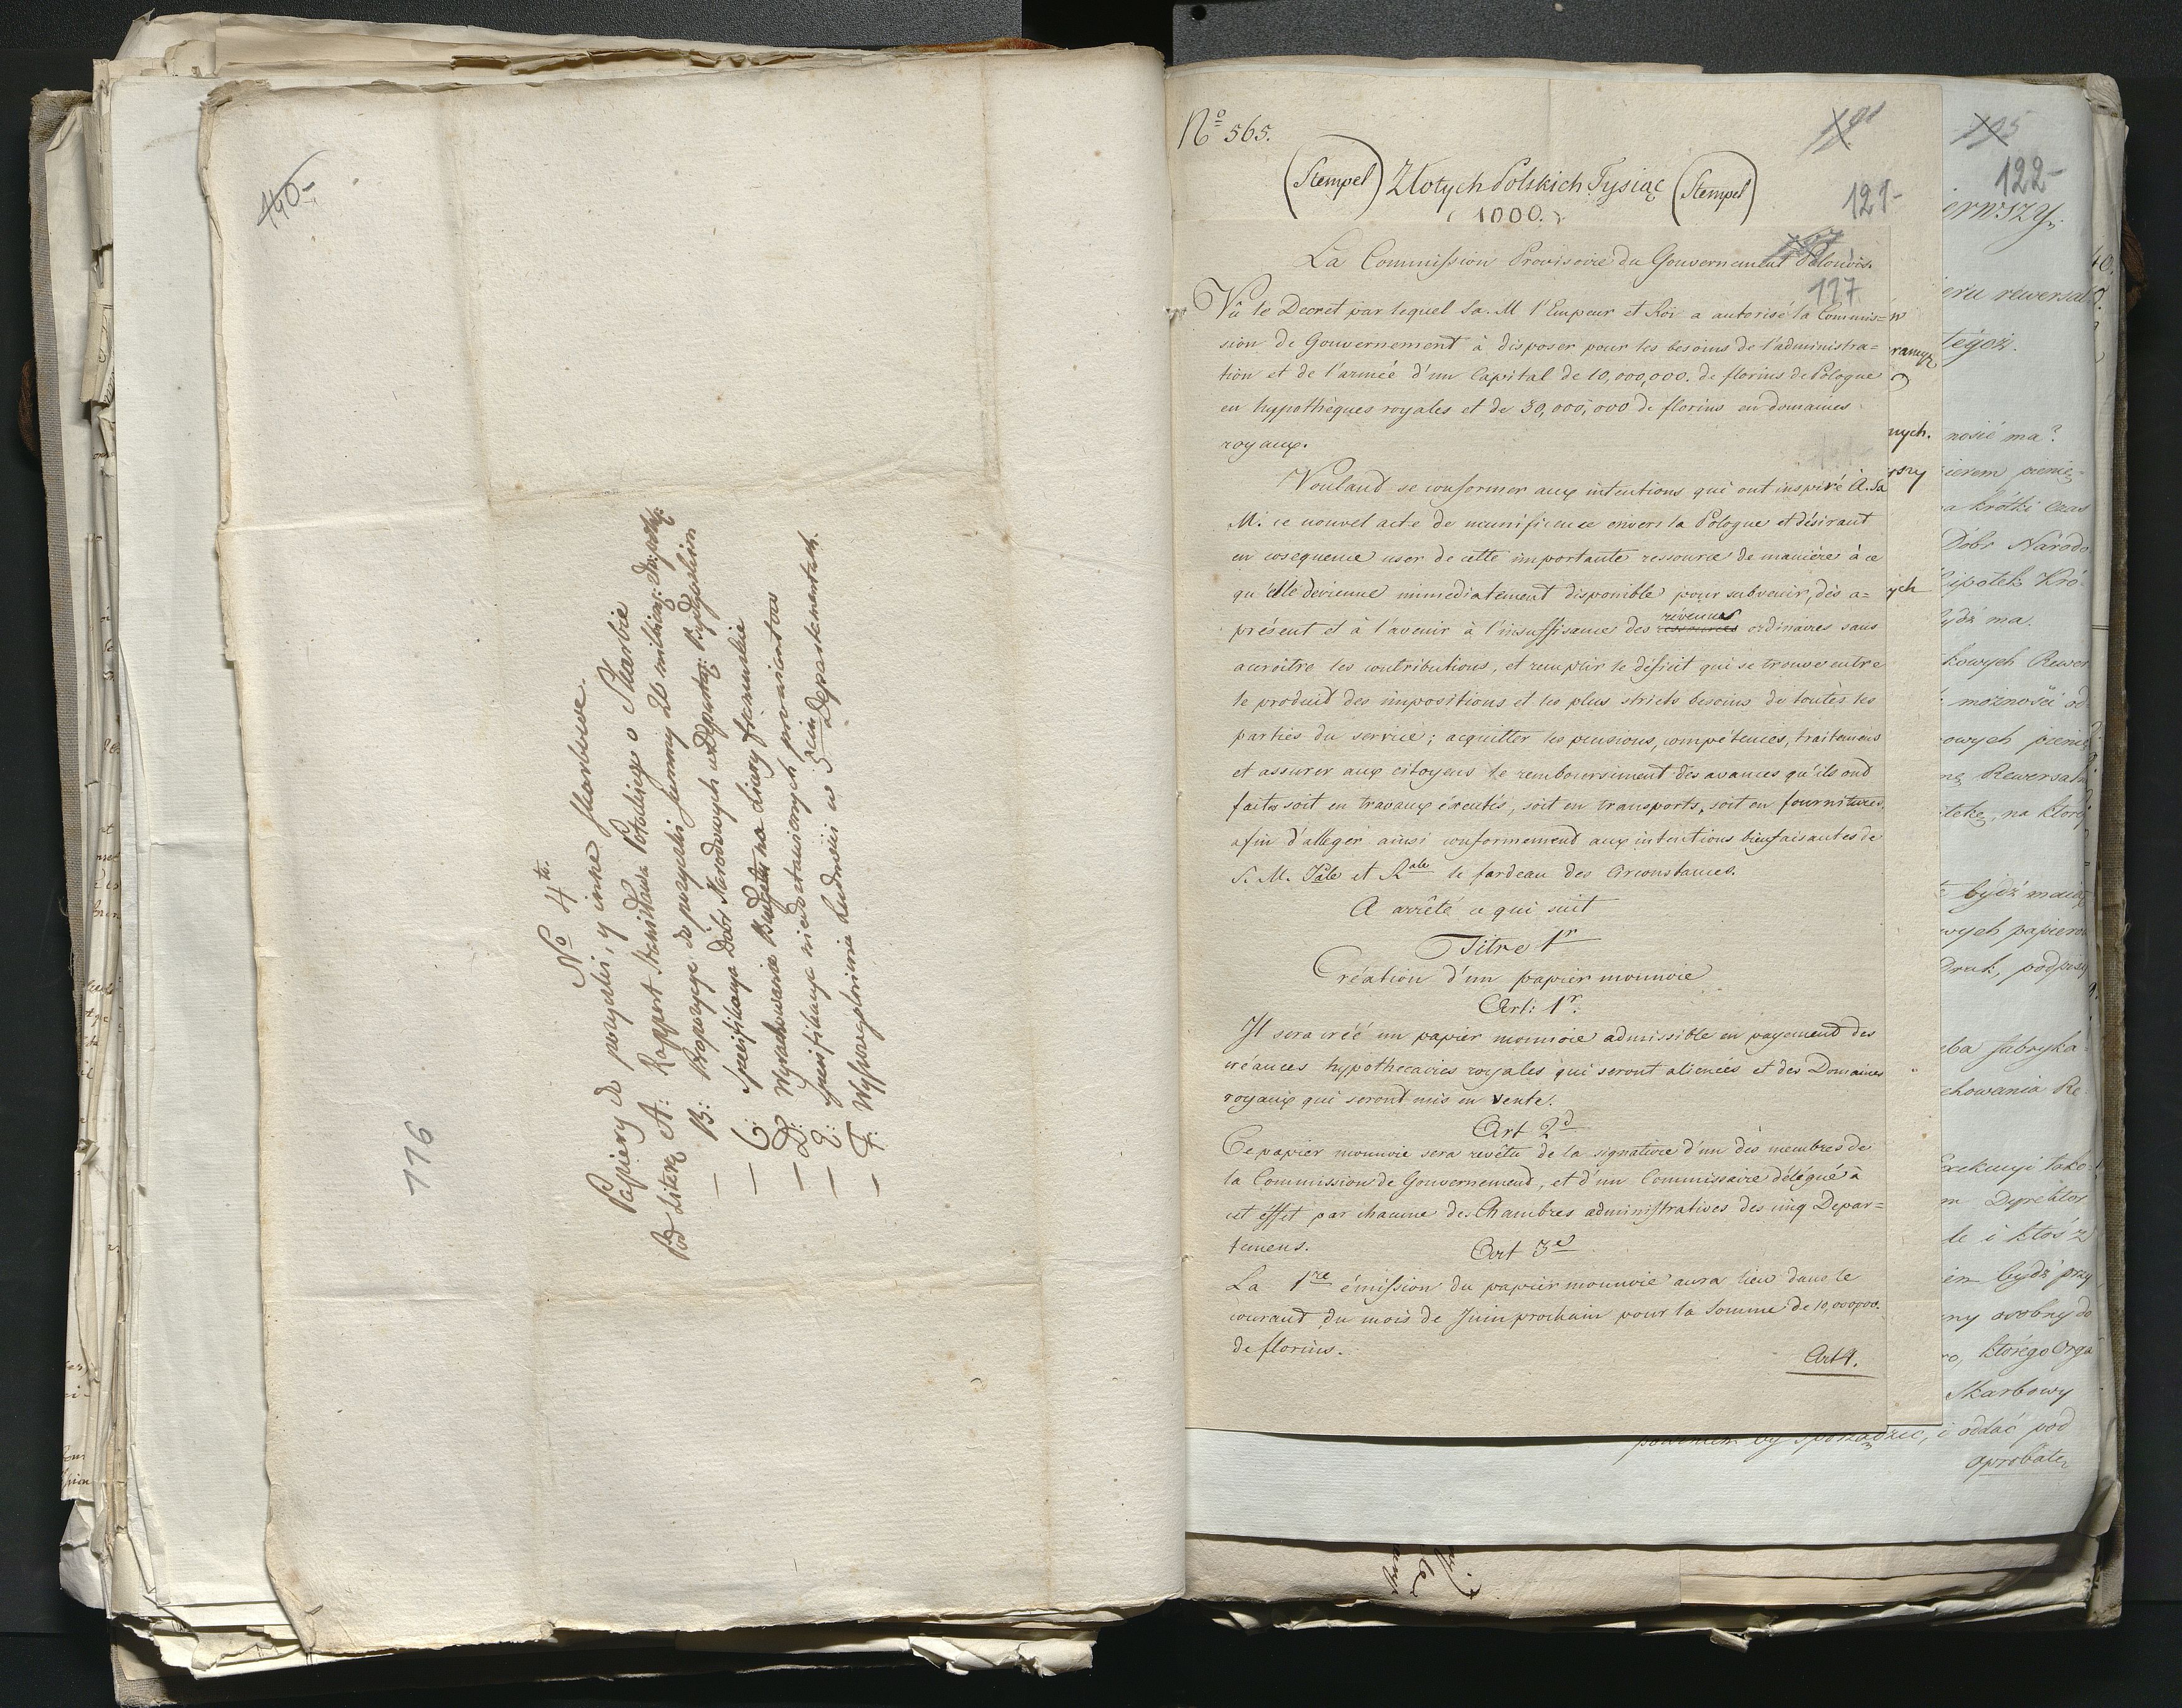 140-
No 4te.
Papiery do pożyczki, y inne skarbowe.
Pod Literą A: Rapport Stanisława Potulickiego o Skarbie
— B: Propozycye do pożyczki summy 20 milliony:
— C: Specyfikacya dóbr Narodowych w Departa: Bydgoskim
— D: Wyrachowanie Budgetu na Liwery francuskie
— E: Specyfikacya niedostawionych prowiantow
— F: Wyszczegolnienie Ludności w 5ciu Departamentach.
116
No 565.
(Stempel) Złotych Polskich Tysiąc (Stempel)
(1000.)
121-
La Commission Provisoire du Gouvernement Polonois.
117
Vû le Decret par lequel Sa. M l'Empeur et Roi a autorisé la Commis=
sion de Gouvernement à disposer pour les besoins de l'administra=
tion et de l'armée d'un Capital de 10,000,000. de florins de Pologne
en hypothèques royales et de 30,000,000 de florins en domaines
royaux.
Voulant se conformer aux intentions qui ont inspiré à. Sa
M. ce nouvel acte de munificence envers la Pologne et désirant
en cosequence user de cette importante ressource de manière à ce
qu'elle devienne immediatement disponible pour subvenir, dès a=
présent et à l'avenir à l'insuffisance des ressources révenues ordinaires sans
accroitre les contributions, et remplir le déficit qui se trouve entre
le produit des impositions et les plus stricts besoins de toutes les
parties du service; acquitter les pensions, compétences, traitemens
et assurer aux citoyens le remboursiment des avances qu'ils ont
faites soit en travaux éxcutés, soit en transports, soit en fournitures,
afin d'alleger ainsi conformement aux intentions bienfaisantes de
S. M. Iale et Rale le fardeau des Circonstances.
A arrêté ce qui suit
Titre 1r
Création d'un papier monnoie
Art: 1r.
Il sera créé un papier monnoie admissible en payement des
créances hypothecaires royales qui seront aliénées et des Domaines
royaux qui seront mis en vente.
Art 2d
Ce papier monnoie sera revêtu de la signature d'un des membres de
la Commission de Gouvernement, et d'un Commissaire délégué à
cet effet par chacune des Chambres administratives des cinq Depar=
temens.
Art 3e
La 1re émission du papier monnoie aura lieu dans le
courant du mois de Juin prochain pour la Somme de 10,000,000.
de florins.
Art 4.
122-
ernszy.
eru rewersal
tégoż.
nych.
nosić ma?
ierem pienię=
a krótki czas
Dóbr Narodo
ipotek Kró=
ych
ydź ma.
kowych Rewer
możności od
owych pienię
ną Rewersal
tekę, na któr
bydź maią
wych papierow
Druk, podpisy
eba fabryka=
chowania Re=
Exekucyi tako
m Dyrektor
le i ktoś z
ien bydź przy
ny osobny do
ro, którego Orga
Skarbowy
powinien by sporządzić, i oddać pod
aprobatę